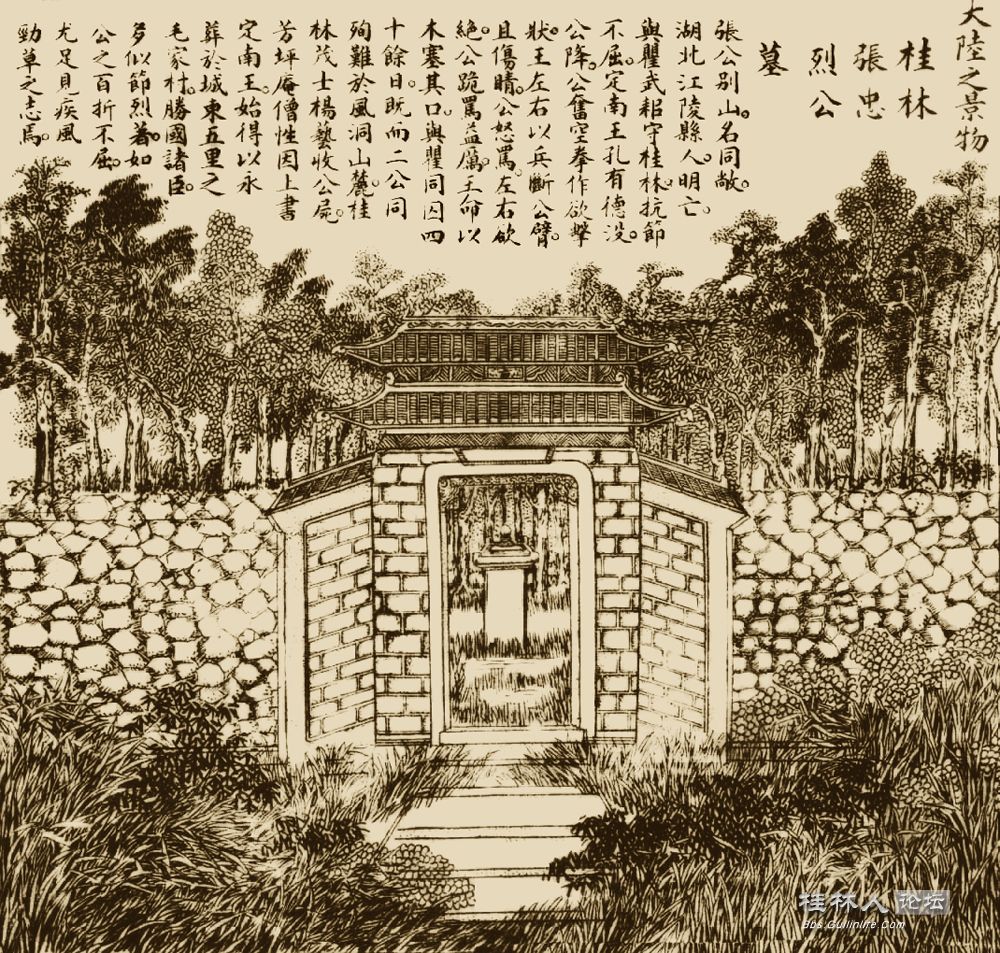 大陸之景物
桂林
張忠
烈公
墓
張公别山。名同敞。
湖北江陵縣人。明亡。
與瞿武耜守桂林。抗節
不屈。定南王孔有德没。
公降。公奮空拳作欲擊
狀。王左右以兵斷公臂。
且傷睛。公怒罵。左右欲
絶。公跪罵益厲。王命以
木塞其口。與瞿同囚四
十餘日。既而二公同
殉難於風洞山麓。桂
林茂士楊藝收公屍。
芳坪庵僧性因上書
定南王。始得以永
葬於城東五里之
毛家村。勝國諸臣。
多似節烈著。如
公之百折不屈。
尤足見疾風
勁草之志焉。
桂林人论坛
Bbs.Guilinlife.com